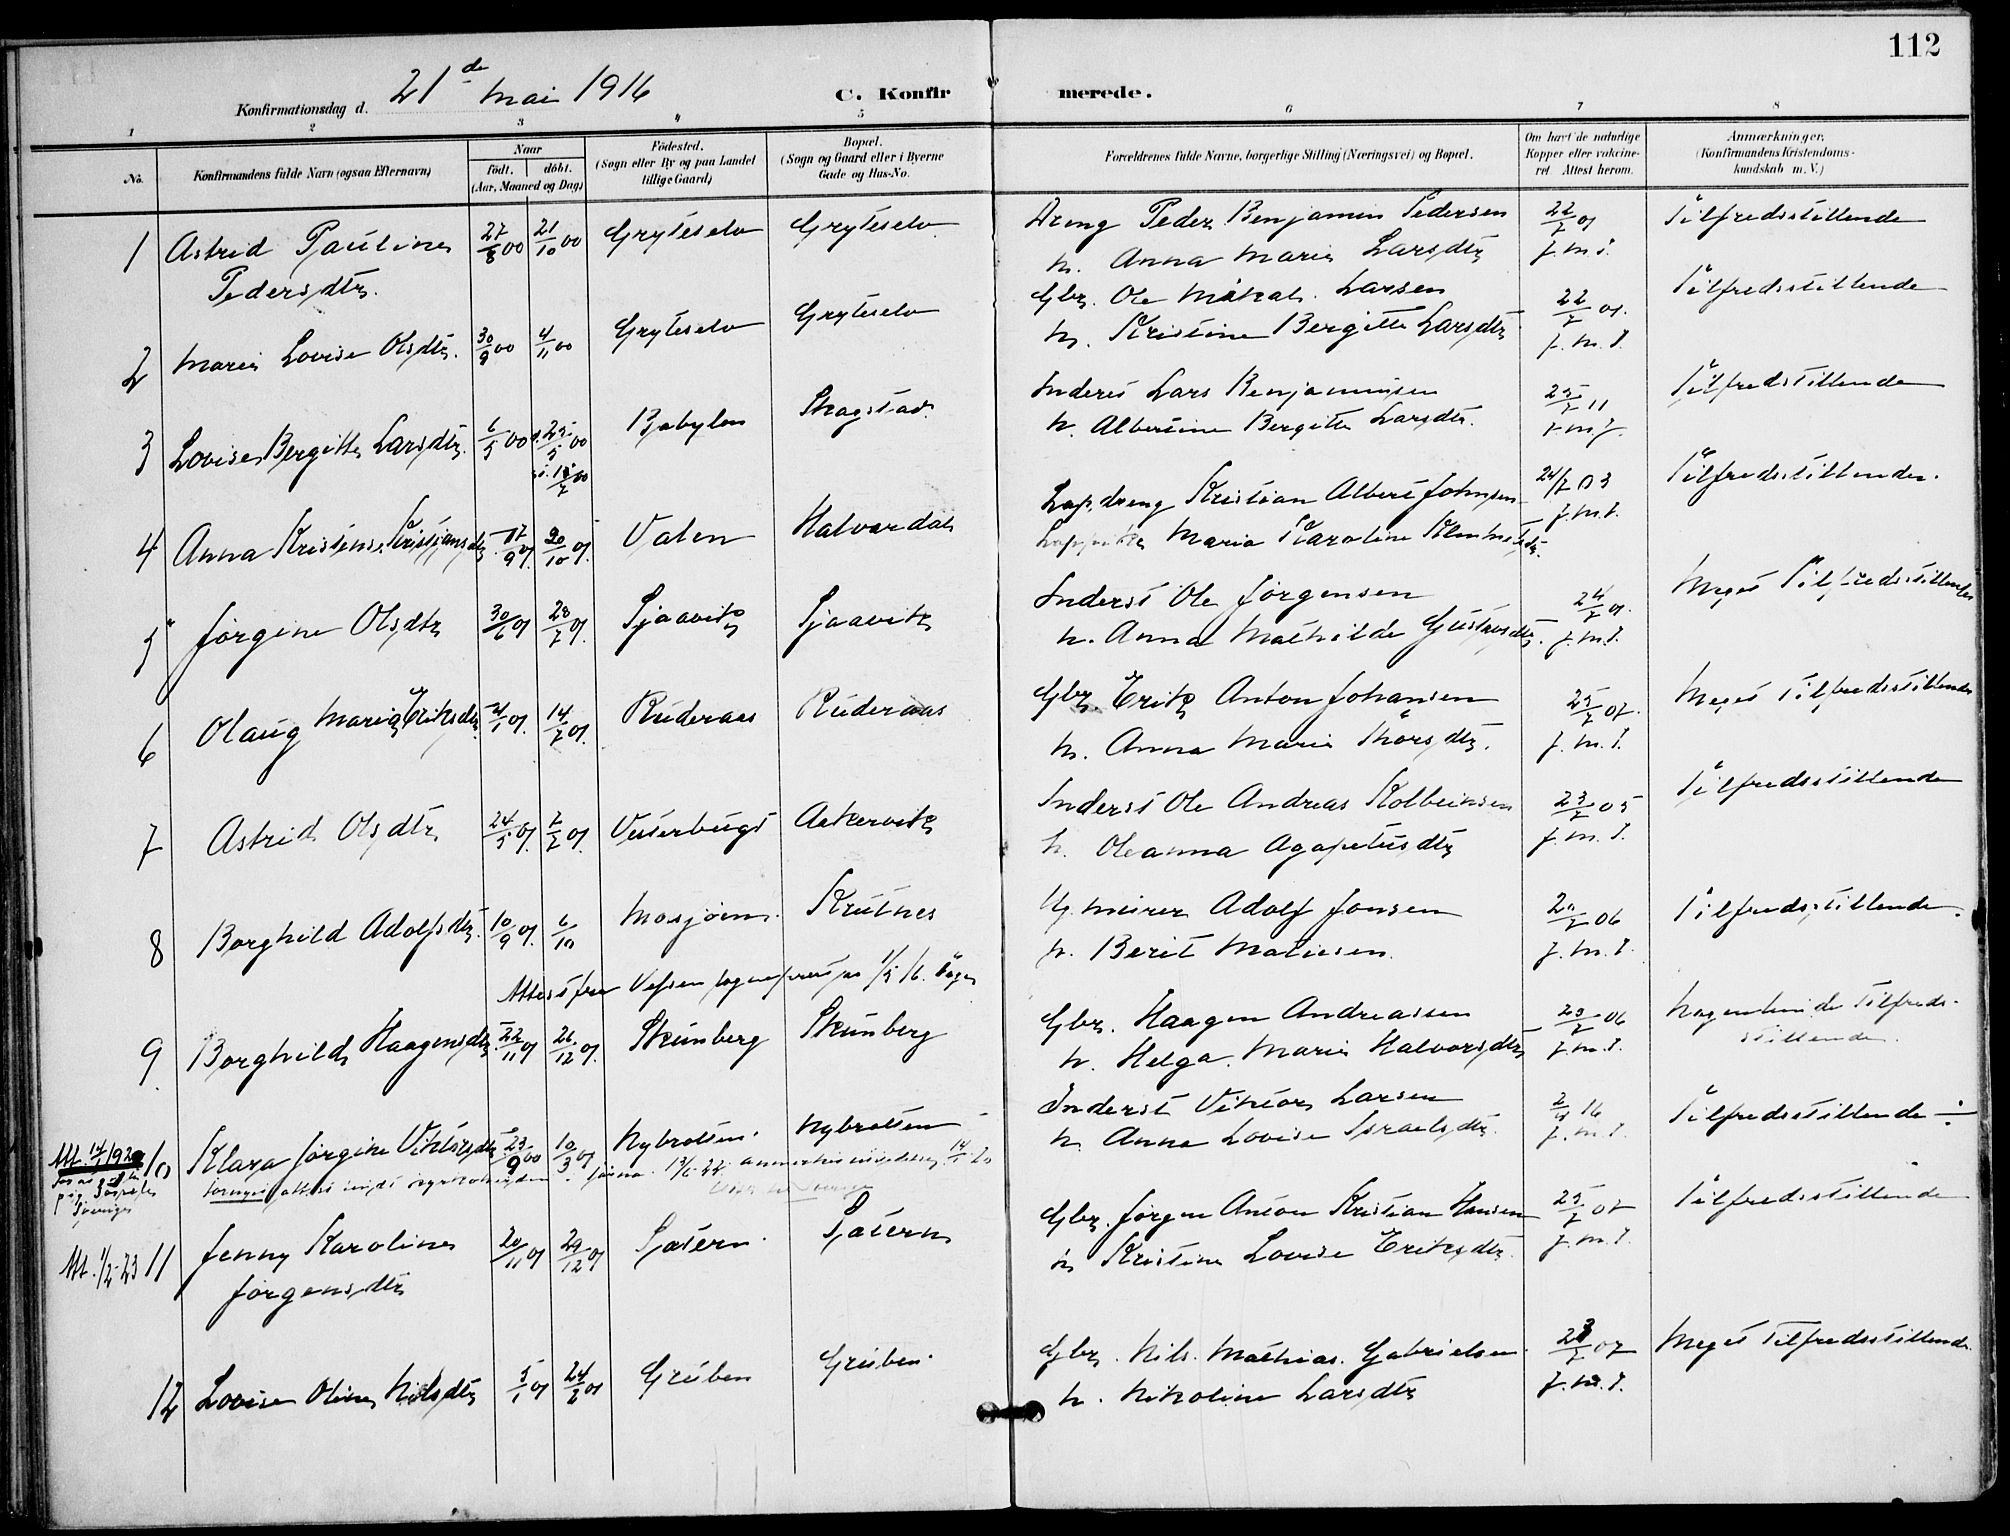 112
Konfirmationsdag d. 21de Mai 1916
C. Konfirmerede.
1 2 3 4 5 6 7 8
No.
Konfirmandens fulde Navn (ogsaa Efternavn)
Naar
født. døbt.
(Aar, Maaned og Dag)
Fødested.
(Sogn eller By og paa Landet
tillige Gaard)
Bopæl.
(Sogn og Gaard eller i Byerne
Gade og Hus-No.
Forældrenes fulde Navne, borgerlige Stilling (Næringsvei) og Bopæl.
Om havt de naturlige
Kopper eller vakcine-
ret. Attest herom.
Anmærkninger.
(Konfirmandens Kristendoms-
kundskab m. V.)
1 Astrid Pauline 27/8 00 21/10 00 Gryteselv Gryteselv Dreng Peder Benjamin Pedersen 22/7 01 Tilfredsstillende
Pedersdtr. h. Anna Marie Larsdtr J.M.I.
2 Marie Lovise Olsdtr. 30/9 00 4/11 00 Gryteselv Gryteselv Gbr. Ole Mikal Larsen 22/7 01. Tilfredsstillende
h. Kristine Bergitte Larsdtr J.M.I.
3 Lovise Bergitte Larsdtr. 6/5 00 25/5 00 Babylon Skogstad Inderst Lars Benjaminsen 25/7 11 Tilfredsstillende
h. Albertine Bergitte Larsdtr.
4 Anna Kristine Kristiansdtr 17/9 01 20/10 01. Valen Halvardal Lap. dreng Kristian Albert Johnsen 24/7 03 Tilfredsstillende.
Maria Karoline J.M.I.
5 Jørgine Olsdtr 30/6 01 28/7 01. Sjaavik Sjaavik Inderst Ole Jørgensen 24/7 01. Meget Tilfredsstillende
h. Anna Mathilde Gustavsdtr. J.M.I.
6 Olaug Marie Eriksdtr. 14/7 01. Ruderaas Ruderaas Gbr. Erik Anton Johansen 25/7 07. Meget Tilfredsstillende
h. Anna Marie Thorsdtr. J.M.I.
7 Astrid Olsdtr 24/5 01. 7/7 01. Vesterbugt Aakervik Inderst Ole Andreas Kolbeinsen 23/7 05 Tilfredsstillende
h. Oleanna Agapetusdtr J.M.I.
8 Borghild Adolfsdtr. 10/9 01. 6/10 Mosjøen. Krutnes Murer Adolf Jonsen 06 Tilfredsstillende.
h. Berit Matiesen. J.M.I.
Attest fra Vefsen sogneprest
9 Borghild Haagensdtr 22/11 01 26/12 01. Skunberg Skunberg Gbr. Haagen Andreassen 06 Nogenlunde Tilfreds-
h. Helga Marie Halvorsdtr J.M.I. stillende.
10 Klara Jørgine Viktorsdtr 23/9 00 10/3 01 Nybrotten. Nybrotten Inderst Viktor Larsen 2/4 16 Tilfredsstillende ÷
h. Anna Lovise Israelsdtr. J.M.I.
Att. 14/1 1920
Att. 1/2-23 11 Jenny Karoline 20/11 01 29/12 01 Sjatern Sjatern Gbr. Jørgen Anton Kristian Hansen 25/7 07 Tilfredsstillende
Jørgensdtr h. Kristine Lovise Eriksdtr. J.M.I.
12 Lovise Oline Nilsdtr 5/1 01 24/2 01 Gruben Gruben. Gbr. Nils Mathias Gabrielsen 23/7 07 Meget Tilfredsstillende.
h. Nikoline Larsdtr J.M.I.